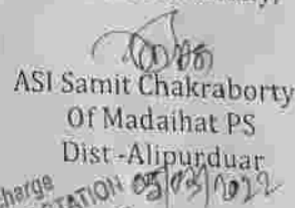 ASI Samit Chakraborty
Of Madaihat PS
Dist -Alipurduar
charge
STATION 05/03/2022